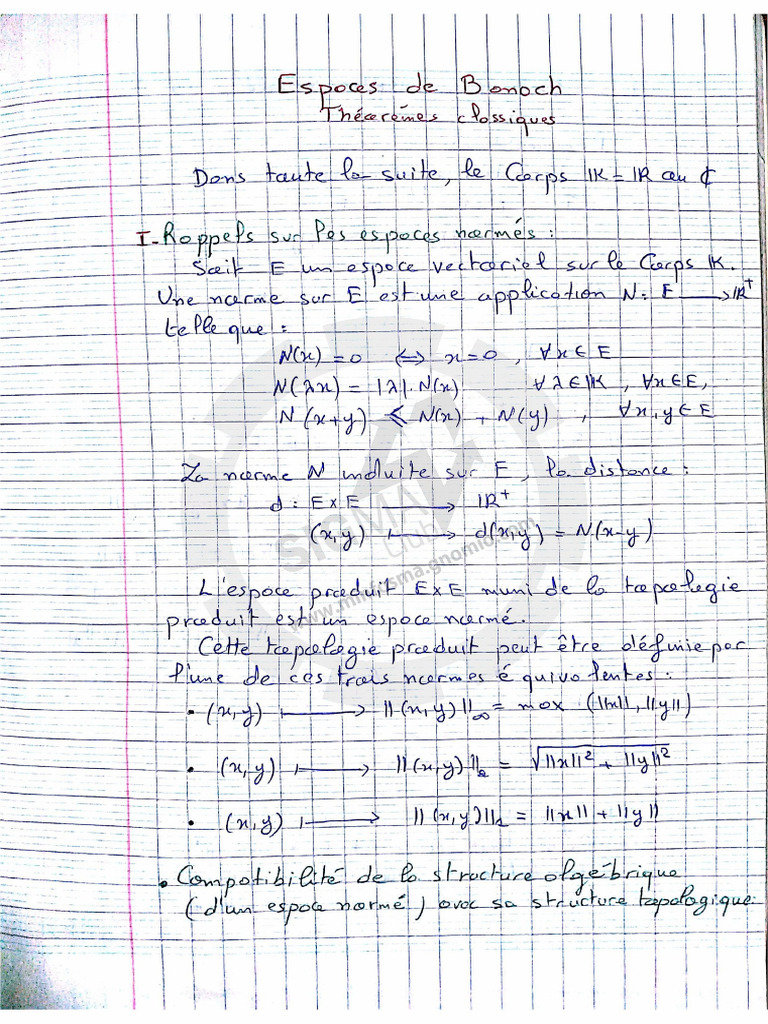 Espaces de Banach
Théorèmes classiques
Dans toute la suite, le Corps IK = IR ou ₵
I- Rappels sur les espaces normés :
Soit E un espace vectoriel sur le Corps IK.
Une norme sur E est une application N: E ⟶ IR⁺
telle que :
N(x) = 0 ⟺ x = 0 , ∀x ∈ E
N(λx) = |λ|. N(x) ∀λ ∈ IK , ∀x ∈ E,
N(x+y) ≤ N(x) + N(y) , ∀x, y ∈ E
La norme N induite sur E, la distance :
d : E × E ⟶ IR⁺
(x,y) ⟼ d(x,y) = N(x-y)
L'espace produit E×E muni de la topologie
produit est un espace normé.
Cette topologie produit peut être définie par
l'une de ces trois normes équivalentes :
• (x,y) ⟼ ||(x,y)||∞ = max (||x||, ||y||)
• (x,y) ⟼ ||(x,y)||₂ = √(||x||² + ||y||²)
• (x,y) ⟼ ||(x,y)||₁ = ||x|| + ||y||
• Compatibilité de la structure algébrique
(d'un espace normé) avec sa structure topologique:
SIGMA
Club